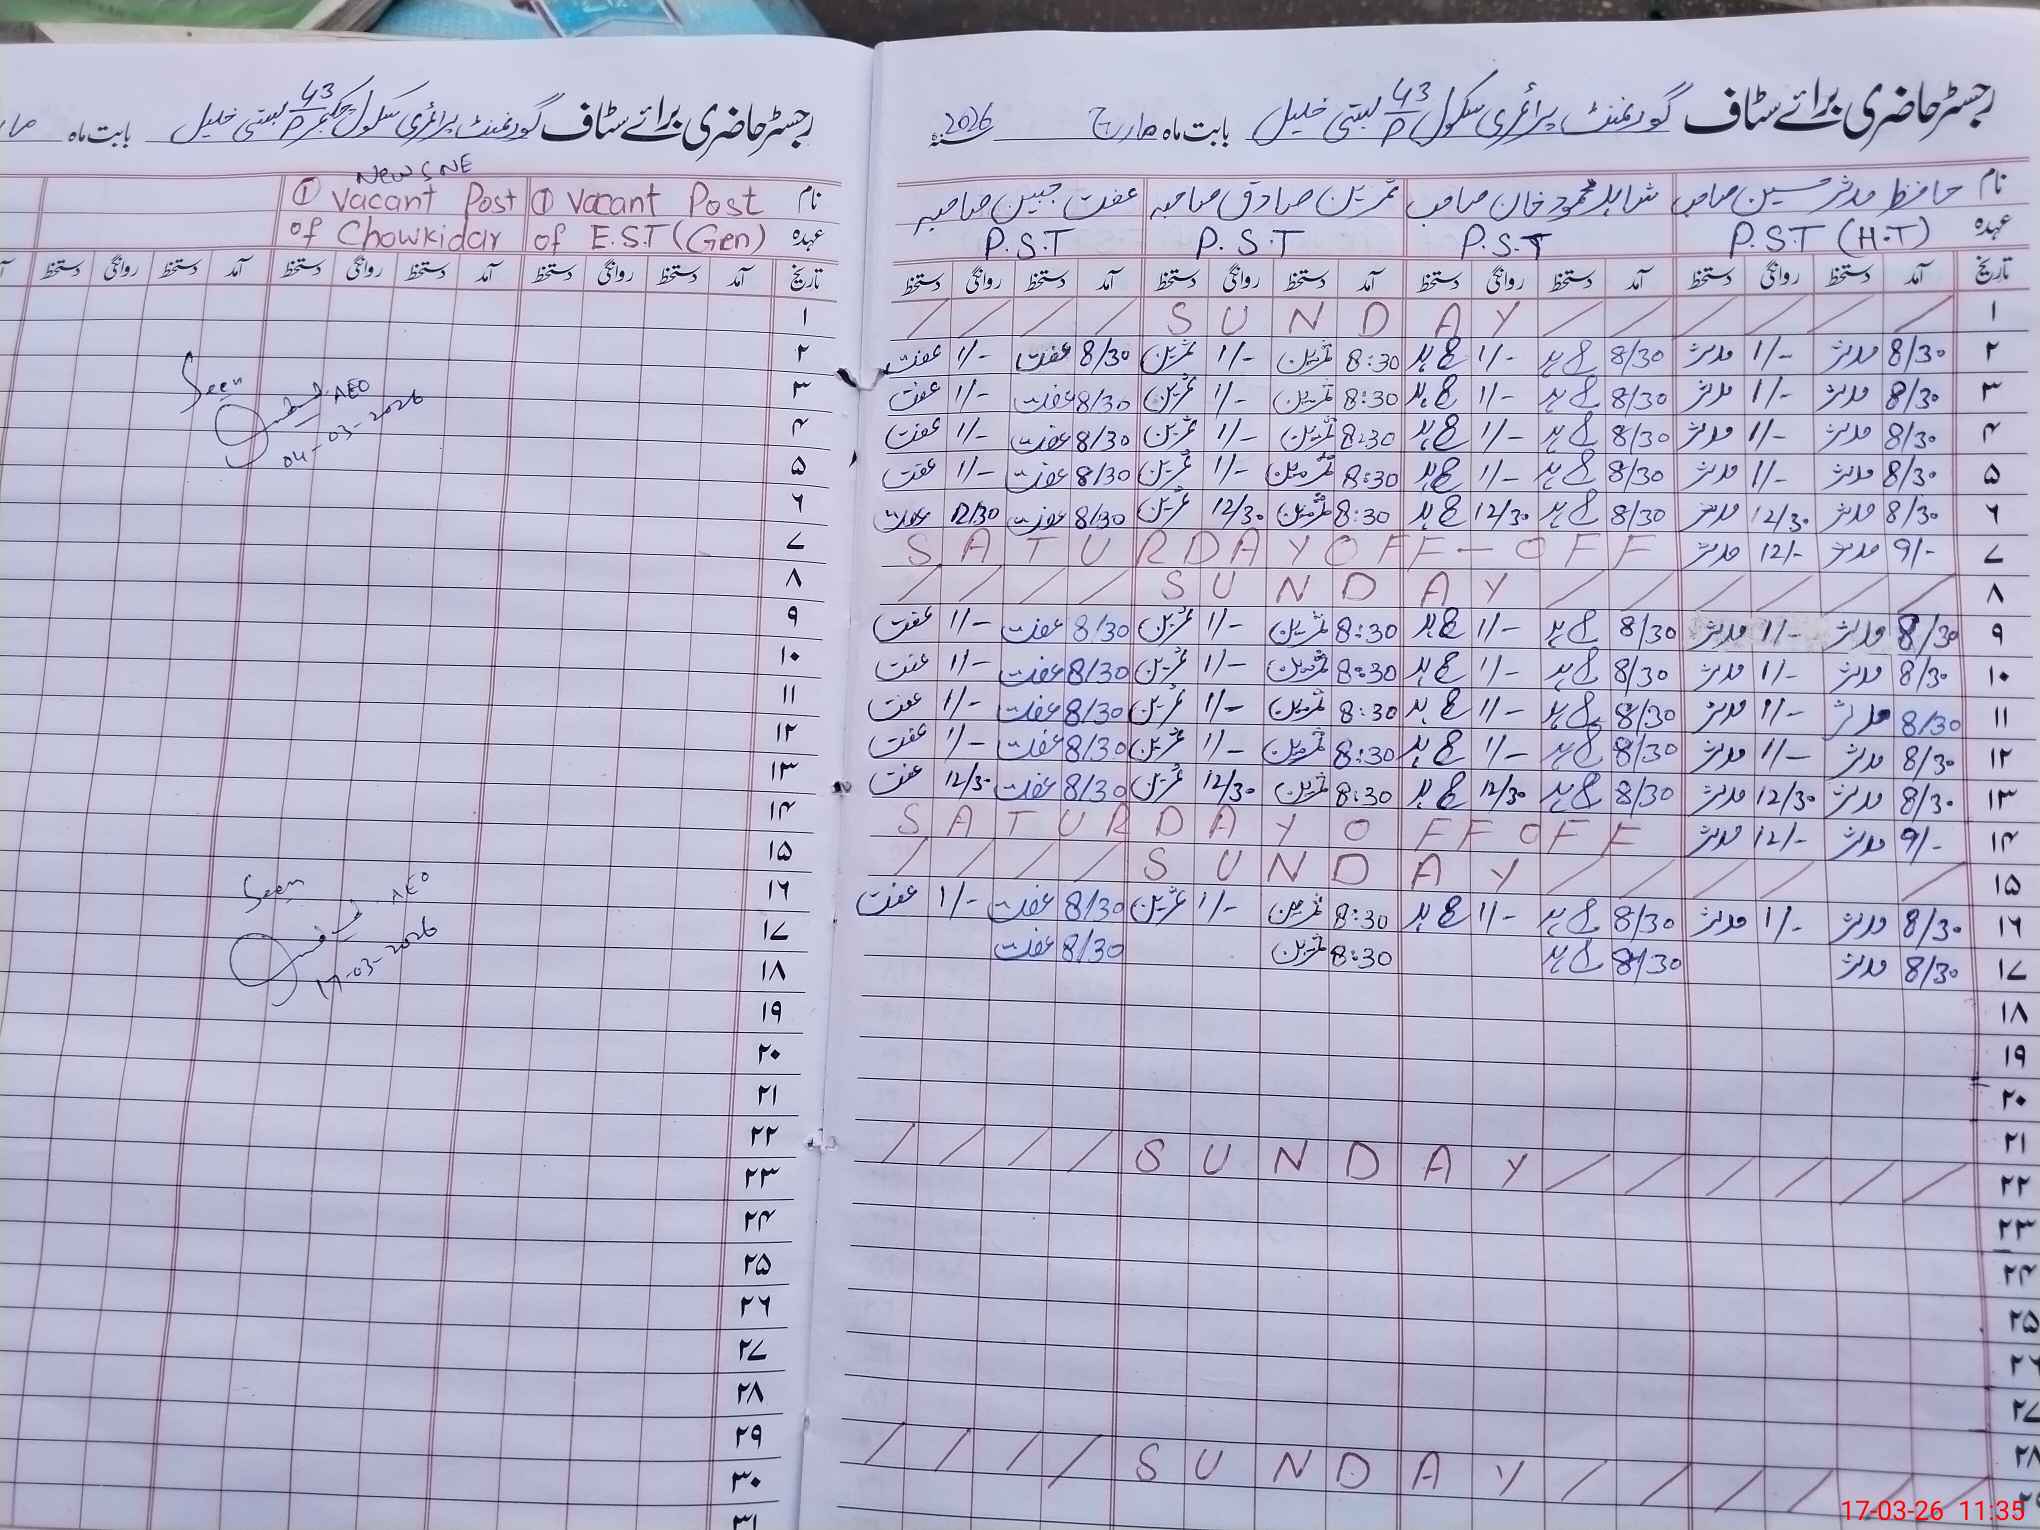 رجسٹر حاضری برائے سٹاف گورنمنٹ پرائمری سکول 43/D بستی خلیل بابت ماہ مارچ 2026ء
نام حافظ مدثر حسین صاحب شاہد محمود خان صاحب ثمرین صادق صاحبہ عفت جبین صاحبہ
عہدہ P.S.T (H.T) P.S.T P.S.T P.S.T
تاریخ آمد دستخط روانگی دستخط آمد دستخط روانگی دستخط آمد دستخط روانگی دستخط آمد دستخط روانگی دستخط
۱ / / / / / / S U N D A Y / / / /
۲ 8/30 مدثر 1/- مدثر 8/30 شاہد 1/- شاہد 8:30 ثمرین 1/- ثمرین 8/30 عفت 1/- عفت
۳ 8/30 مدثر 1/- مدثر 8/30 شاہد 1/- شاہد 8:30 ثمرین 1/- ثمرین 8/30 عفت 1/- عفت
۴ 8/30 مدثر 1/- مدثر 8/30 شاہد 1/- شاہد 8:30 ثمرین 1/- ثمرین 8/30 عفت 1/- عفت
۵ 8/30 مدثر 1/- مدثر 8/30 شاہد 1/- شاہد 8:30 ثمرین 1/- ثمرین 8/30 عفت 1/- عفت
۶ 8/30 مدثر 12/30 مدثر 8/30 شاہد 12/30 شاہد 8:30 ثمرین 12/30 ثمرین 8/30 عفت 12/30 عفت
۷ 9/- مدثر 12/- مدثر S A T U R D A Y O F F - O F F
۸ / / / / / / S U N D A Y / / / /
۹ 8/30 مدثر 1/- مدثر 8/30 شاہد 1/- شاہد 8:30 ثمرین 1/- ثمرین 8/30 عفت 1/- عفت
۱۰ 8/30 مدثر 1/- مدثر 8/30 شاہد 1/- شاہد 8:30 ثمرین 1/- ثمرین 8/30 عفت 1/- عفت
۱۱ 8/30 مدثر 1/- مدثر 8/30 شاہد 1/- شاہد 8:30 ثمرین 1/- ثمرین 8/30 عفت 1/- عفت
۱۲ 8/30 مدثر 1/- مدثر 8/30 شاہد 1/- شاہد 8:30 ثمرین 1/- ثمرین 8/30 عفت 1/- عفت
۱۳ 8/30 مدثر 12/30 مدثر 8/30 شاہد 12/30 شاہد 8:30 ثمرین 12/30 ثمرین 8/30 عفت 12/30 عفت
۱۴ 9/- مدثر 12/- مدثر S A T U R D A Y O F F O F F
۱۵ / / / / / S U N D A Y / / / /
۱۶ 8/30 مدثر 1/- مدثر 8/30 شاہد 1/- شاہد 8:30 ثمرین 1/- ثمرین 8/30 عفت 1/- عفت
۱۷ 8/30 مدثر 8/30 شاہد 8:30 ثمرین 8/30 عفت
۱۸
۱۹
۲۰
۲۱
۲۲ / / / / / / S U N D A Y / / / /
۲۳
۲۴
۲۵
۲۶
۲۷
۲۸
۲۹ / / / / / / S U N D A Y / / / /
رجسٹر حاضری برائے سٹاف گورنمنٹ پرائمری سکول چک نمبر 43/D بستی خلیل بابت ماہ
New SNE
نام ① Vacant Post ① Vacant Post
عہدہ of E.S.T (Gen) of Chowkidar
تاریخ آمد دستخط روانگی دستخط آمد دستخط روانگی دستخط آمد دستخط روانگی دستخط
۱
۲
۳ Seen
۴ AEO
۵ 04-03-2026
۶
۷
۸
۹
۱۰
۱۱
۱۲
۱۳
۱۴
۱۵
۱۶ Seen
۱۷ AEO
۱۸ 17-03-2026
۱۹
۲۰
۲۱
۲۲
۲۳
۲۴
۲۵
۲۶
۲۷
۲۸
۲۹
۳۰
۳۱
17-03-26 11:35